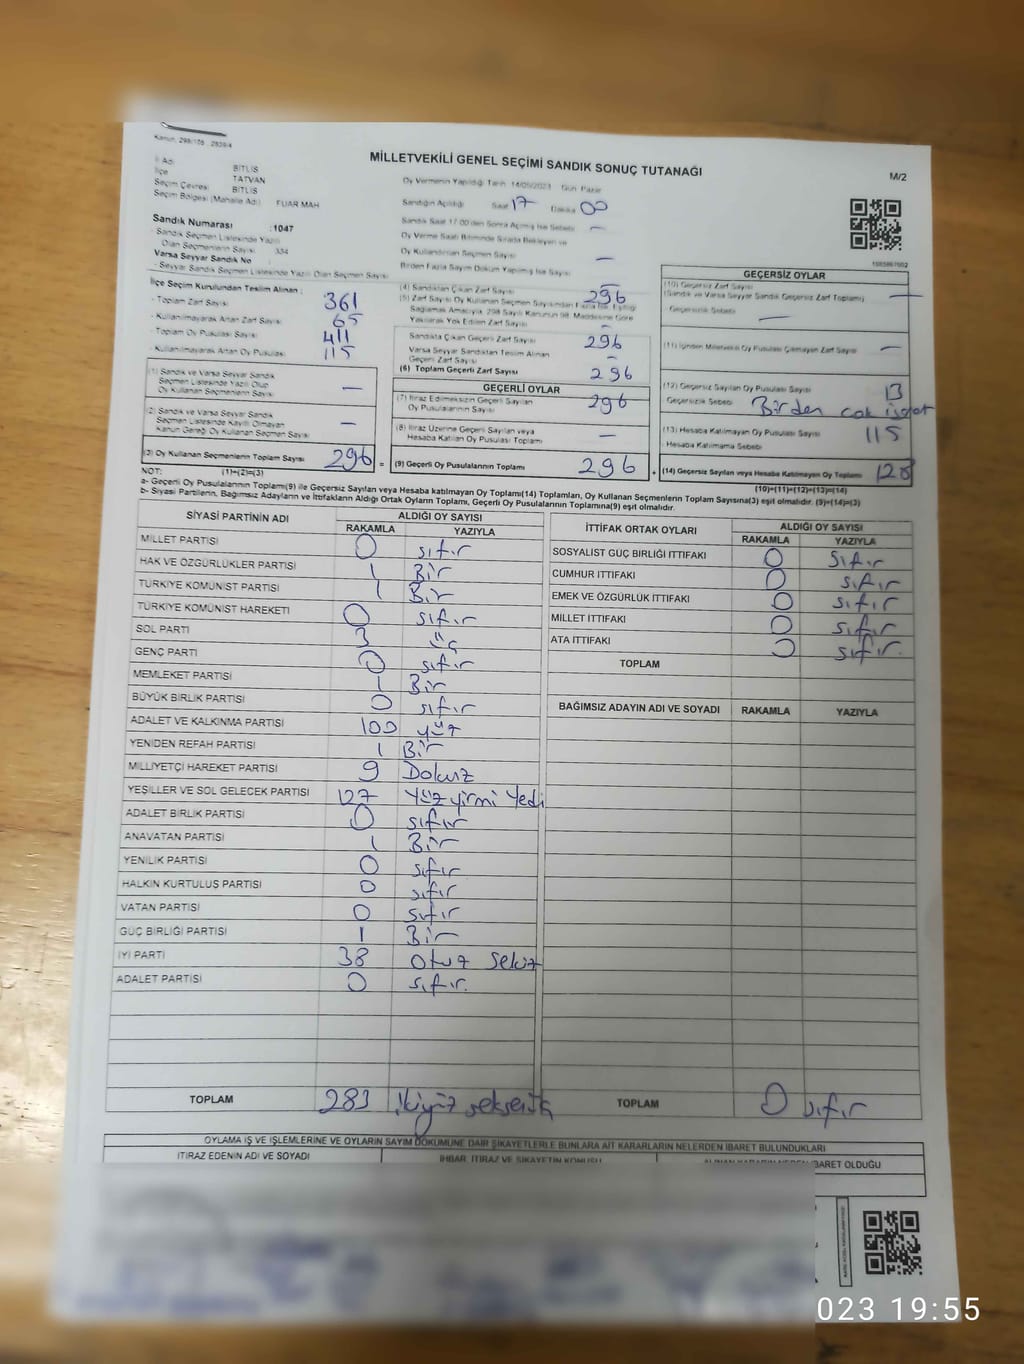 Kanun: 298/105 2839/4
MİLLETVEKİLİ GENEL SEÇİMİ SANDIK SONUÇ TUTANAĞI
M/2
İl Adı BİTLİS
İlçe TATVAN
Seçim Çevresi BİTLİS
Seçim Bölgesi (Mahalle Adı) FUAR MAH
Oy Vermenin Yapıldığı Tarih 14/05/2023 Gün Pazar
Sandığın Açıldığı Saat 17 Dakika 00
Sandık Saat 17:00'den Sonra Açılmış İse Sebebi —
Oy Verme Saati Bitiminde Sırada Bekleyen ve
Oy Kullandırılan Seçmen Sayısı —
Birden Fazla Sayım Döküm Yapılmış İse Sayısı
Sandık Numarası : 1047
- Sandık Seçmen Listesinde Yazılı
Olan Seçmenlerin Sayısı 334
Varsa Seyyar Sandık No
- Seyyar Sandık Seçmen Listesinde Yazılı Olan Seçmen Sayısı
İlçe Seçim Kurulundan Teslim Alınan ;
- Toplam Zarf Sayısı 361
- Kullanılmayarak Artan Zarf Sayısı 65
- Toplam Oy Pusulası Sayısı 411
- Kullanılmayarak Artan Oy Pusulası 115
(1) Sandık ve Varsa Seyyar Sandık
Seçmen Listesinde Yazılı Olup
Oy Kullanan Seçmenlerin Sayısı —
(2) Sandık ve Varsa Seyyar Sandık
Seçmen Listesinde Kayıtlı Olmayan
Kanun Gereği Oy Kullanan Seçmen Sayısı —
(3) Oy Kullanan Seçmenlerin Toplam Sayısı 296 =
(4) Sandıktan Çıkan Zarf Sayısı 296
(5) Zarf Sayısı Oy Kullanan Seçmen Sayısından Fazla İse, Eşitliği
Sağlamak Amacıyla, 298 Sayılı Kanunun 98. Maddesine Göre
Yakılarak Yok Edilen Zarf Sayısı —
Sandıkta Çıkan Geçerli Zarf Sayısı 296
Varsa Seyyar Sandıktan Teslim Alınan
Geçerli Zarf Sayısı —
(6) Toplam Geçerli Zarf Sayısı 296
GEÇERLİ OYLAR
(7) İtiraz Edilmeksizin Geçerli Sayılan
Oy Pusulalarının Sayısı 296
(8) İtiraz Üzerine Geçerli Sayılan veya
Hesaba Katılan Oy Pusulası Toplamı —
(9) Geçerli Oy Pusulalarının Toplamı 296 +
GEÇERSİZ OYLAR
(10) Geçersiz Zarf Sayısı
(Sandık ve Varsa Seyyar Sandık Geçersiz Zarf Toplamı) —
- Geçersizlik Sebebi —
(11) İçinden Milletvekili Oy Pusulası Çıkmayan Zarf Sayısı —
(12) Geçersiz Sayılan Oy Pusulası Sayısı 13
Geçersizlik Sebebi Birden çok işaret
(13) Hesaba Katılmayan Oy Pusulası Sayısı 115
Hesaba Katılmama Sebebi
(14) Geçersiz Sayılan veya Hesaba Katılmayan Oy Toplamı 128
NOT: (1)+(2)=(3)
(10)+(11)+(12)+(13)=(14)
a- Geçerli Oy Pusulalarının Toplamı(9) ile Geçersiz Sayılan veya Hesaba katılmayan Oy Toplamı(14) Toplamları, Oy Kullanan Seçmenlerin Toplam Sayısına(3) eşit olmalıdır. (9)+(14)=(3)
b- Siyasi Partilerin, Bağımsız Adayların ve İttifakların Aldığı Ortak Oyların Toplamı, Geçerli Oy Pusulalarının Toplamına(9) eşit olmalıdır.
SİYASİ PARTİNİN ADI ALDIĞI OY SAYISI
RAKAMLA YAZIYLA
MİLLET PARTİSİ 0 sıfır
HAK VE ÖZGÜRLÜKLER PARTİSİ 1 Bir
TÜRKİYE KOMÜNİST PARTİSİ 1 Bir
TÜRKİYE KOMÜNİST HAREKETİ 0 sıfır
SOL PARTİ 3 üç
GENÇ PARTİ 0 sıfır
MEMLEKET PARTİSİ 1 Bir
BÜYÜK BİRLİK PARTİSİ 0 sıfır
ADALET VE KALKINMA PARTİSİ 100 yüz
YENİDEN REFAH PARTİSİ 1 Bir
MİLLİYETÇİ HAREKET PARTİSİ 9 Dokuz
YEŞİLLER VE SOL GELECEK PARTİSİ 127 Yüz yirmi Yedi
ADALET BİRLİK PARTİSİ 0 sıfır
ANAVATAN PARTİSİ 1 Bir
YENİLİK PARTİSİ 0 sıfır
HALKIN KURTULUŞ PARTİSİ 0 sıfır
VATAN PARTİSİ 0 sıfır
GÜÇ BİRLİĞİ PARTİSİ 1 Bir
İYİ PARTİ 38 Otuz sekiz
ADALET PARTİSİ 0 sıfır.
TOPLAM 283 ikiyüz seksenüç
İTTİFAK ORTAK OYLARI ALDIĞI OY SAYISI
RAKAMLA YAZIYLA
SOSYALİST GÜÇ BİRLİĞİ İTTİFAKI 0 sıfır
CUMHUR İTTİFAKI 0 sıfır
EMEK VE ÖZGÜRLÜK İTTİFAKI 0 sıfır
MİLLET İTTİFAKI 0 sıfır
ATA İTTİFAKI 0 sıfır.
TOPLAM
BAĞIMSIZ ADAYIN ADI VE SOYADI RAKAMLA YAZIYLA
TOPLAM 0 sıfır
OYLAMA İŞ VE İŞLEMLERİNE VE OYLARIN SAYIM DÖKÜMÜNE DAİR ŞİKAYETLERLE BUNLARA AİT KARARLARIN NELERDEN İBARET BULUNDUKLARI
İTİRAZ EDENİN ADI VE SOYADI
İHBAR, İTİRAZ VE ŞİKAYETİN KONUSU
ALINAN KARARIN NEDEN İBARET OLDUĞU
023 19:55